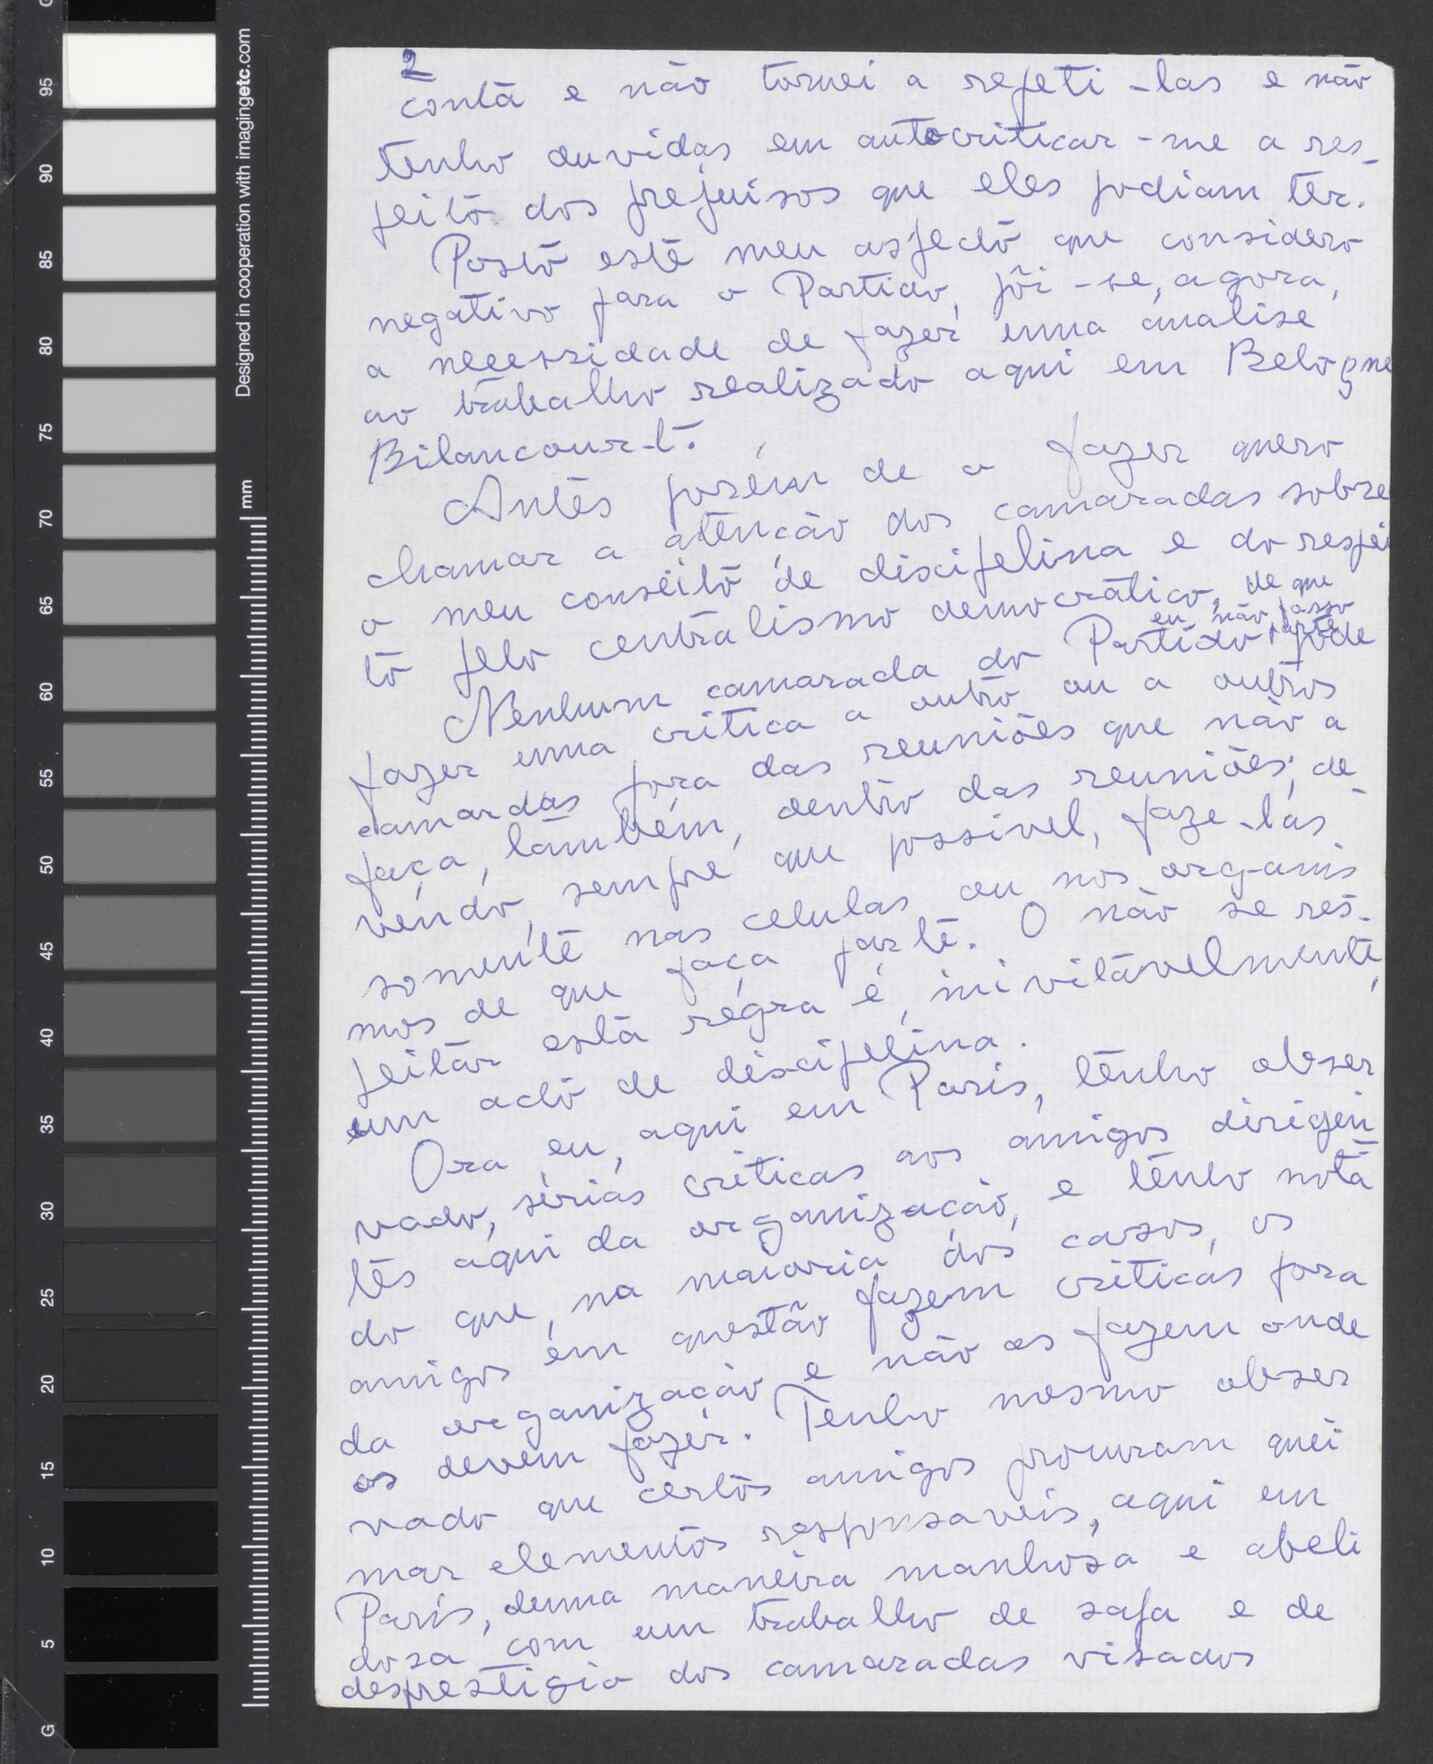 2
conta e não tornei a repeti-las e não
tenho duvidas em autocriticar-me a res-
peito dos prejuisos que eles podiam ter.
Posto este meu aspecto que considero
negativo para o Partido, põi-se, agora,
a necessidade de fazer uma analise
ao trabalho realizado aqui em Belogne
Bilancourt.
Antes porém de a fazer quero
chamar a atenção dos camaradas sobre
o meu conseito de discipelina e do respei
to pelo centralismo democrático, de que
eu não faço parte
Nenhum camarada do Partido, pode
fazer uma critica a outro ou a outros
camardas fora das reuniões que não a
faça, também, dentro das reuniões; de-
vendo, sempre que possivel, faze-las
somente nas celulas ou nos organis
mos de que faça parte. O não se res-
peitar esta régra é, inivitávelmente,
um acto de discipelina.
Ora eu, aqui em Paris, tenho obser
vado, sérias criticas aos amigos dirigen
tes aqui da organização, e tenho nota
do que, na maioria dos casos, os
amigos em questão fazem criticas fora
da organização e não as fazem onde
as devem fazer. Tenho mesmo obser
vado que certos amigos procuram quei
mar elementos responsaveis, aqui em
Paris, duma maneira manhosa e abeli
dosa com um trabalho de sapa e de
desprestigio dos camaradas visados
Designed in cooperation with imagingetc.com
mm
95
90
85
80
75
70
65
60
55
50
45
40
35
30
25
20
15
10
5
G